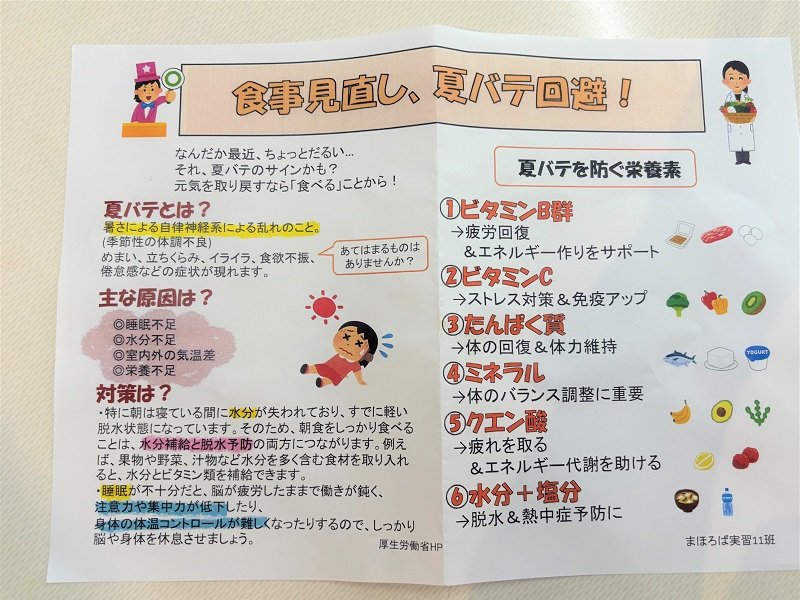 食事見直し、夏バテ回避！
なんだか最近、ちょっとだるい…
それ、夏バテのサインかも？
元気を取り戻すなら「食べる」ことから！
夏バテとは？
暑さによる自律神経系による乱れのこと。
(季節性の体調不良)
めまい、立ちくらみ、イライラ、食欲不振、
倦怠感などの症状が現れます。
あてはまるものは
ありませんか？
主な原因は？
◎睡眠不足
◎水分不足
◎室内外の気温差
◎栄養不足
対策は？
・特に朝は寝ている間に水分が失われており、すでに軽い
脱水状態になっています。そのため、朝食をしっかり食べる
ことは、水分補給と脱水予防の両方につながります。例え
ば、果物や野菜、汁物など水分を多く含む食材を取り入れ
ると、水分とビタミン類を補給できます。
・睡眠が不十分だと、脳が疲労したままで働きが鈍く、
注意力や集中力が低下したり、
身体の体温コントロールが難しくなったりするので、しっかり
脳や身体を休息させましょう。
厚生労働省HP
夏バテを防ぐ栄養素
①ビタミンB群
→疲労回復
＆エネルギー作りをサポート
②ビタミンC
→ストレス対策＆免疫アップ
③たんぱく質
→体の回復＆体力維持
YOGURT
④ミネラル
→体のバランス調整に重要
⑤クエン酸
→疲れを取る
＆エネルギー代謝を助ける
⑥水分＋塩分
→脱水＆熱中症予防に
まほろば実習11班